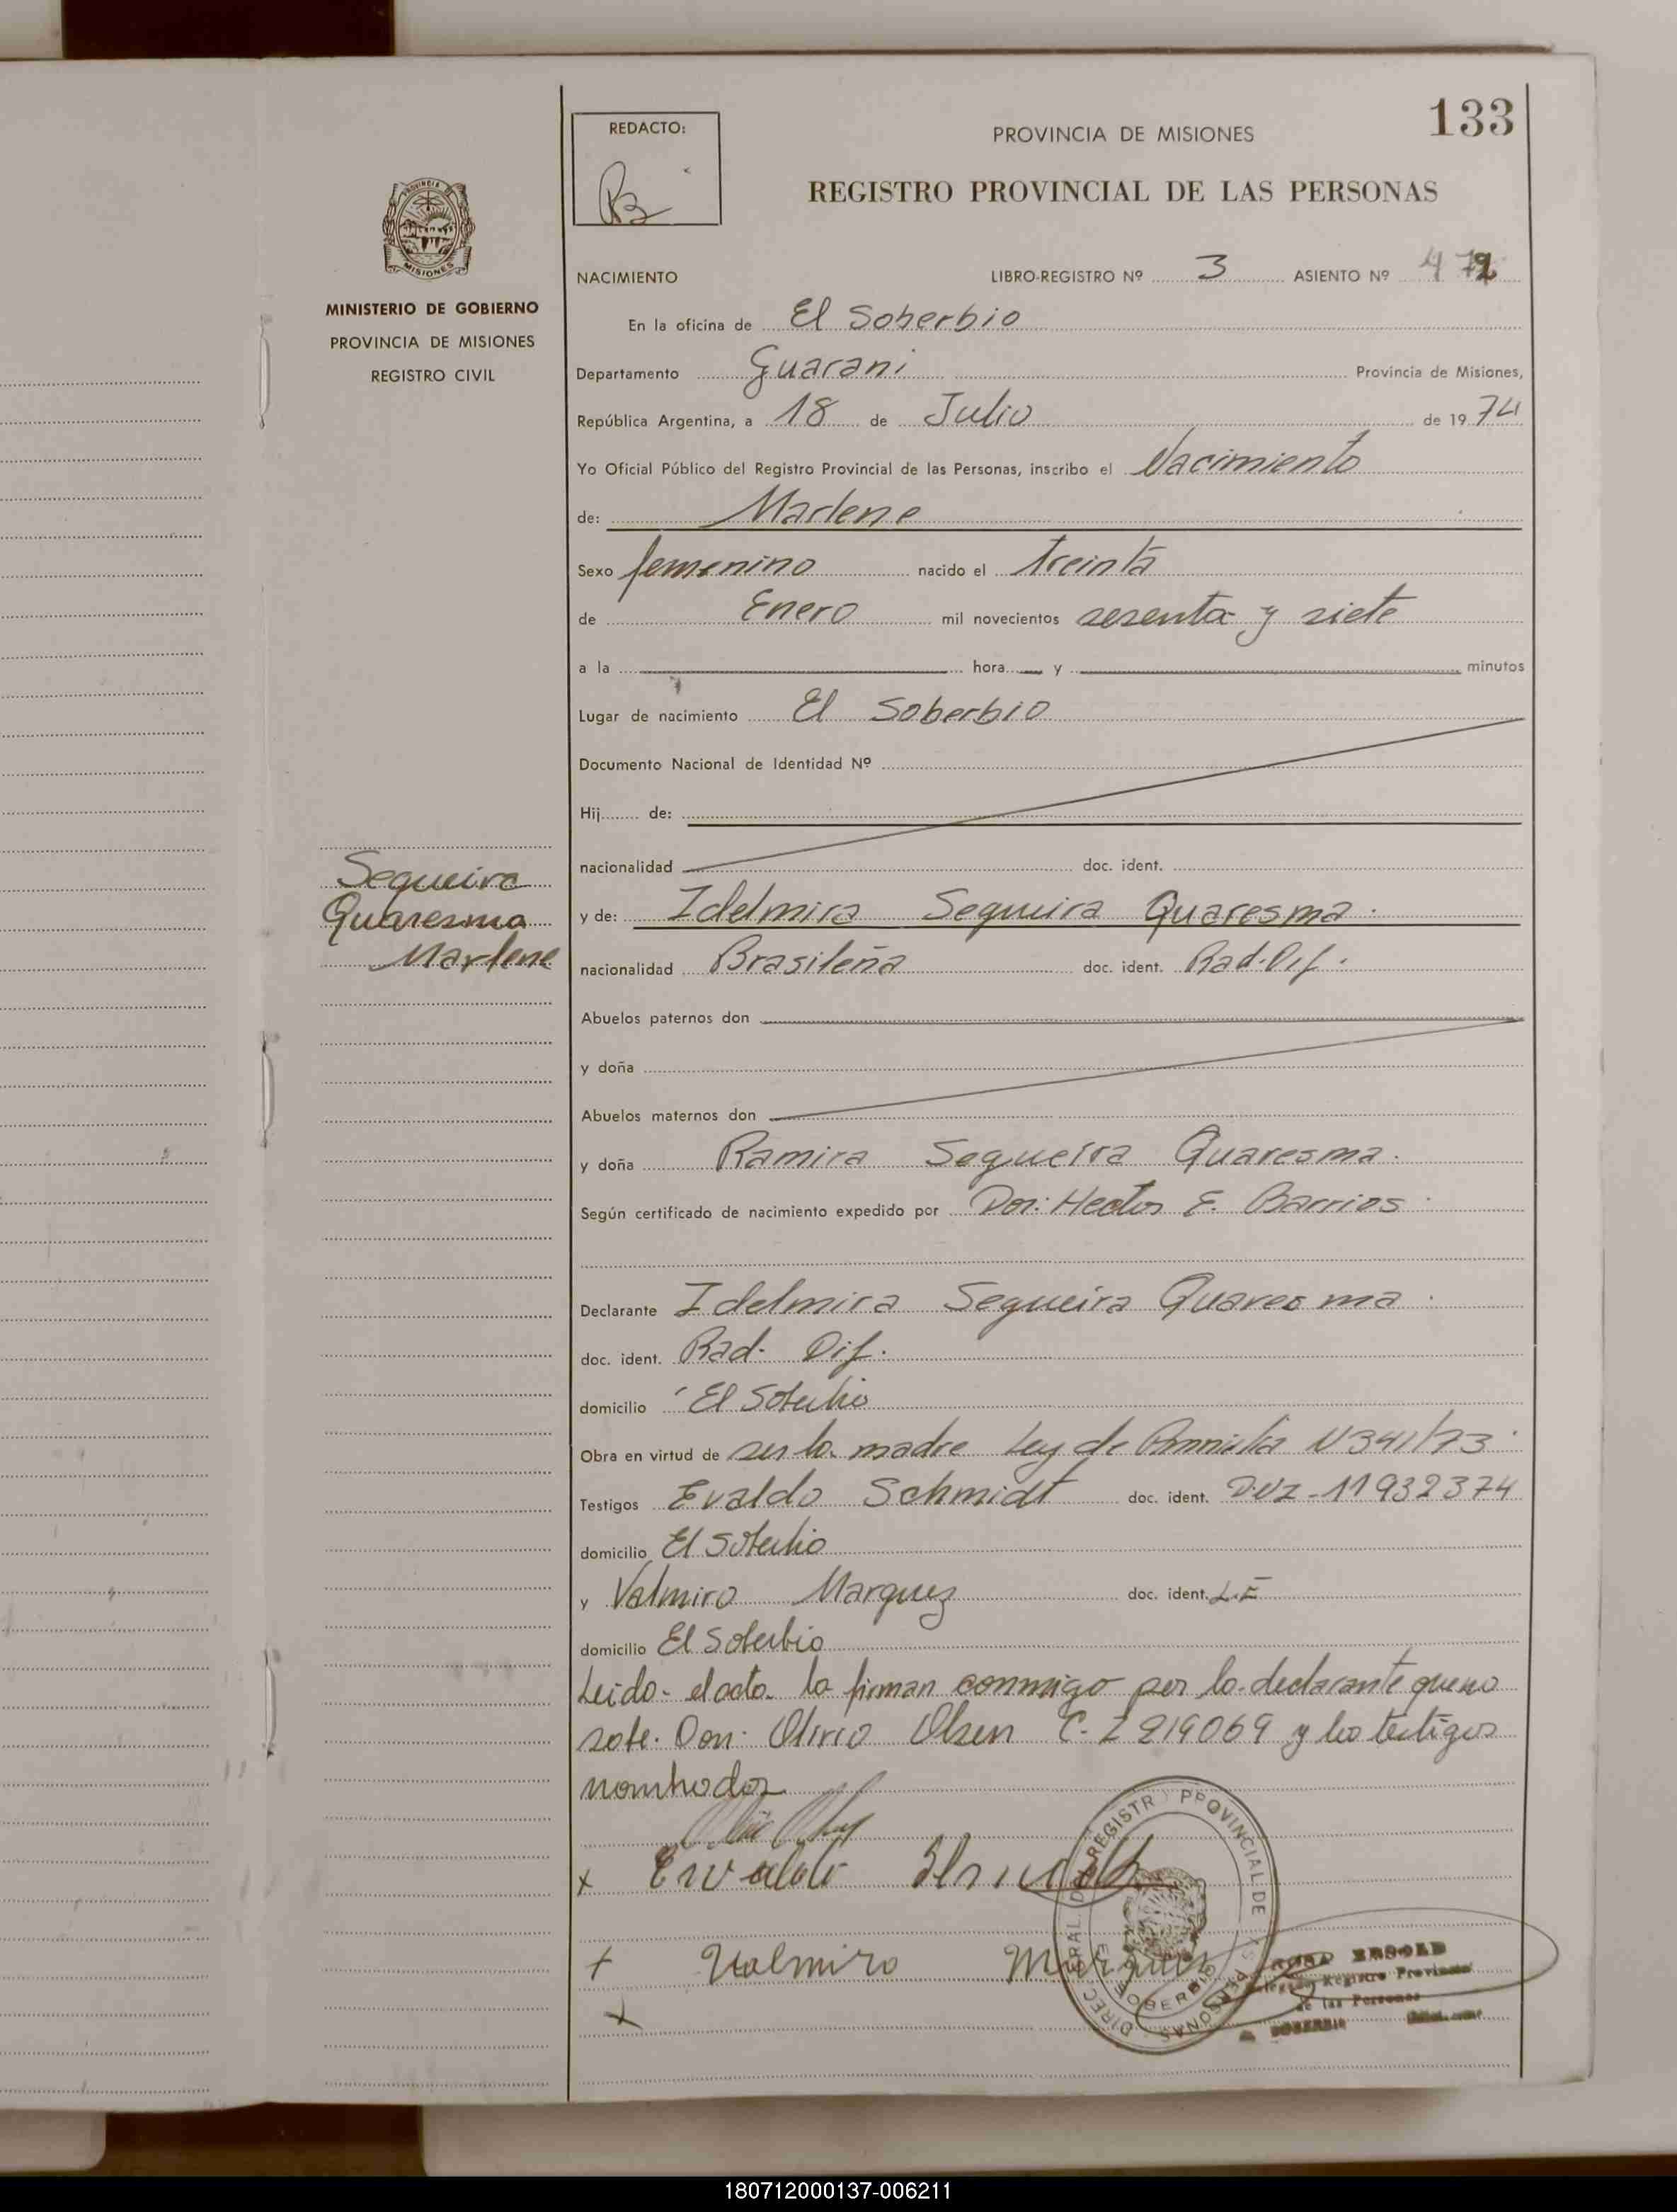 133
REDACTO:
PROVINCIA DE MISIONES
REGISTRO PROVINCIAL DE LAS PERSONAS
PROVINCIA DE
MISIONES
MINISTERIO DE GOBIERNO
PROVINCIA DE MISIONES
REGISTRO CIVIL
NACIMIENTO LIBRO-REGISTRO Nº 3 ASIENTO Nº 472
En la oficina de El Soberbio
Departamento Guarani Provincia de Misiones,
República Argentina, a 18 de Julio de 1974
Yo Oficial Público del Registro Provincial de las Personas, inscribo el Nacimiento
de: Marlene
Sexo femenino nacido el treinta
de Enero mil novecientos sesenta y siete
a la hora y minutos
Lugar de nacimiento El Soberbio
Documento Nacional de Identidad Nº
Hij de:
nacionalidad doc. ident.
Sequeira
Quaresma
Marlene
y de: Idelmira Sequeira Quaresma.
nacionalidad Brasileña doc. ident. Rad. Dif.
Abuelos paternos don
y doña
Abuelos maternos don
y doña Ramira Sequeira Quaresma.
Según certificado de nacimiento expedido por Dor: Hector E. Barrios
Declarante Idelmira Sequeira Quaresma.
doc. ident. Rad. Dif.
domicilio El Soberbio
Obra en virtud de ser la madre Ley de Amnistia N 341/73
Testigos Evaldo Schmidt doc. ident. DNI-11932374
domicilio El Soberbio
y Valmiro Marquez doc. ident. L.E
domicilio El Soberbio
Leido el acta la firman conmigo por la declarante que no
sabe. Don: Olirio Olsen C.I 219069 y los testigos
nombrados
x Ervaldo
+ Ualmiro
x
DIREC RAL DE REGISTR PROVINCIAL DE PERSONAS
SOBERBIO
Registro Provincial
de las Personas
SOBERBIO
180712000137-006211